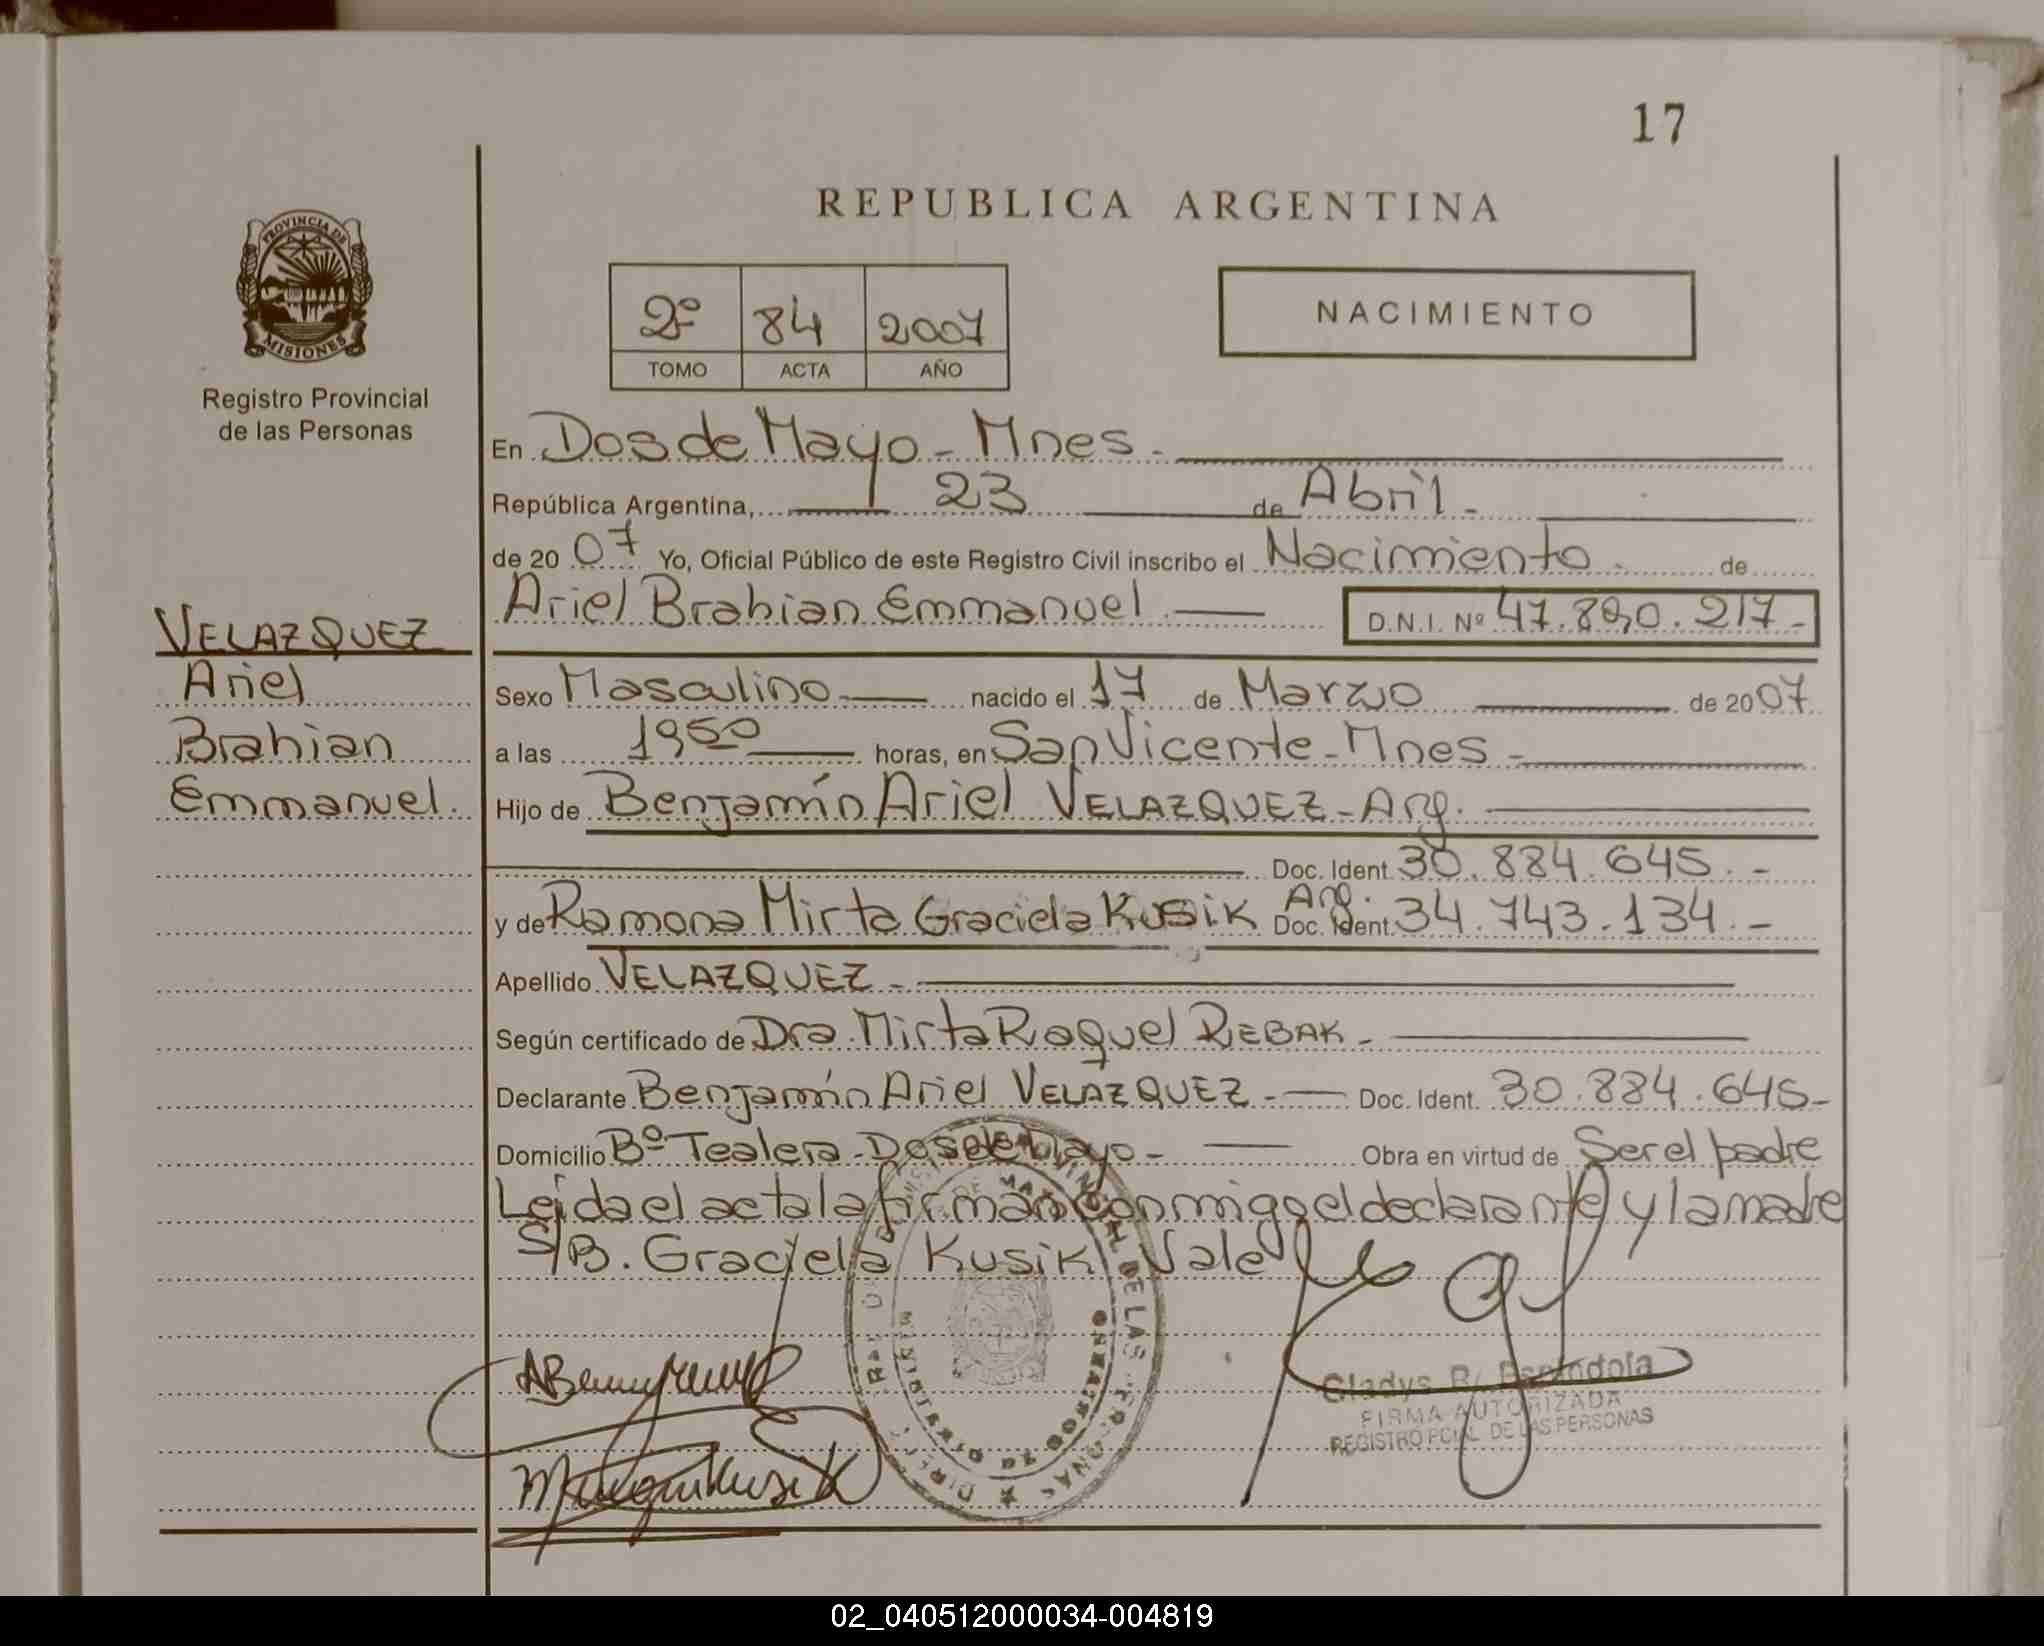 17
REPUBLICA ARGENTINA
PROVINCIA DE
MISIONES
Registro Provincial
de las Personas
2º 84 2007
TOMO ACTA AÑO
NACIMIENTO
En Dos de Mayo - Mnes -
República Argentina, 23 de Abril -
de 20 07 Yo, Oficial Público de este Registro Civil inscribo el Nacimiento de
Ariel Brahian Emmanuel D.N.I. Nº 47.890.217-
VELAZQUEZ
Ariel
Brahian
Emmanuel.
Sexo Masculino nacido el 17 de Marzo de 2007
a las 1950 horas, en San Vicente - Mnes -
Hijo de Benjamín Ariel VELAZQUEZ - Arg.
Doc. Ident. 30.884.645.-
Arg.
y de Ramona Mirta Graciela KUSIK Doc. Ident. 34.743.134.-
Apellido VELAZQUEZ -
Según certificado de Dra. Mirta Raquel REBAK -
Declarante Benjamín Ariel VELAZQUEZ - Doc. Ident. 30.884.645-
Domicilio Bº Tealera - Dos de Mayo - Obra en virtud de Ser el padre
Leída el acta la firman conmigo el declarante y la madre
S/B. Graciela Kusik Vale
Gladys R.
FIRMA AUTORIZADA
REGISTRO PCIAL DE LAS PERSONAS
02_040512000034-004819